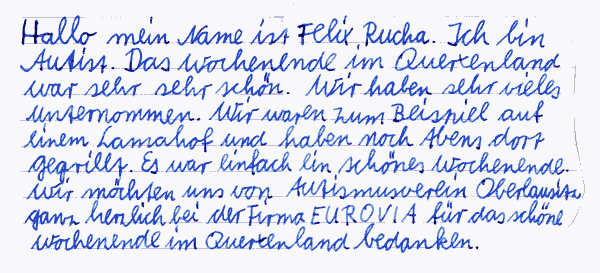 Hallo mein Name ist Felix Rucha. Ich bin
Autist. Das Wochenende im Querxenland
war sehr sehr schön. Wir haben sehr vieles
unternommen. Wir waren zum Beispiel auf
einem Lamahof und haben noch Abens dort
gegrillt. Es war einfach ein schönes Wochenende.
Wir möchten uns von Autismusverein Oberlausitz
ganz herzlich bei der Firma EUROVIA für das schöne
Wochenende im Querxenland bedanken.